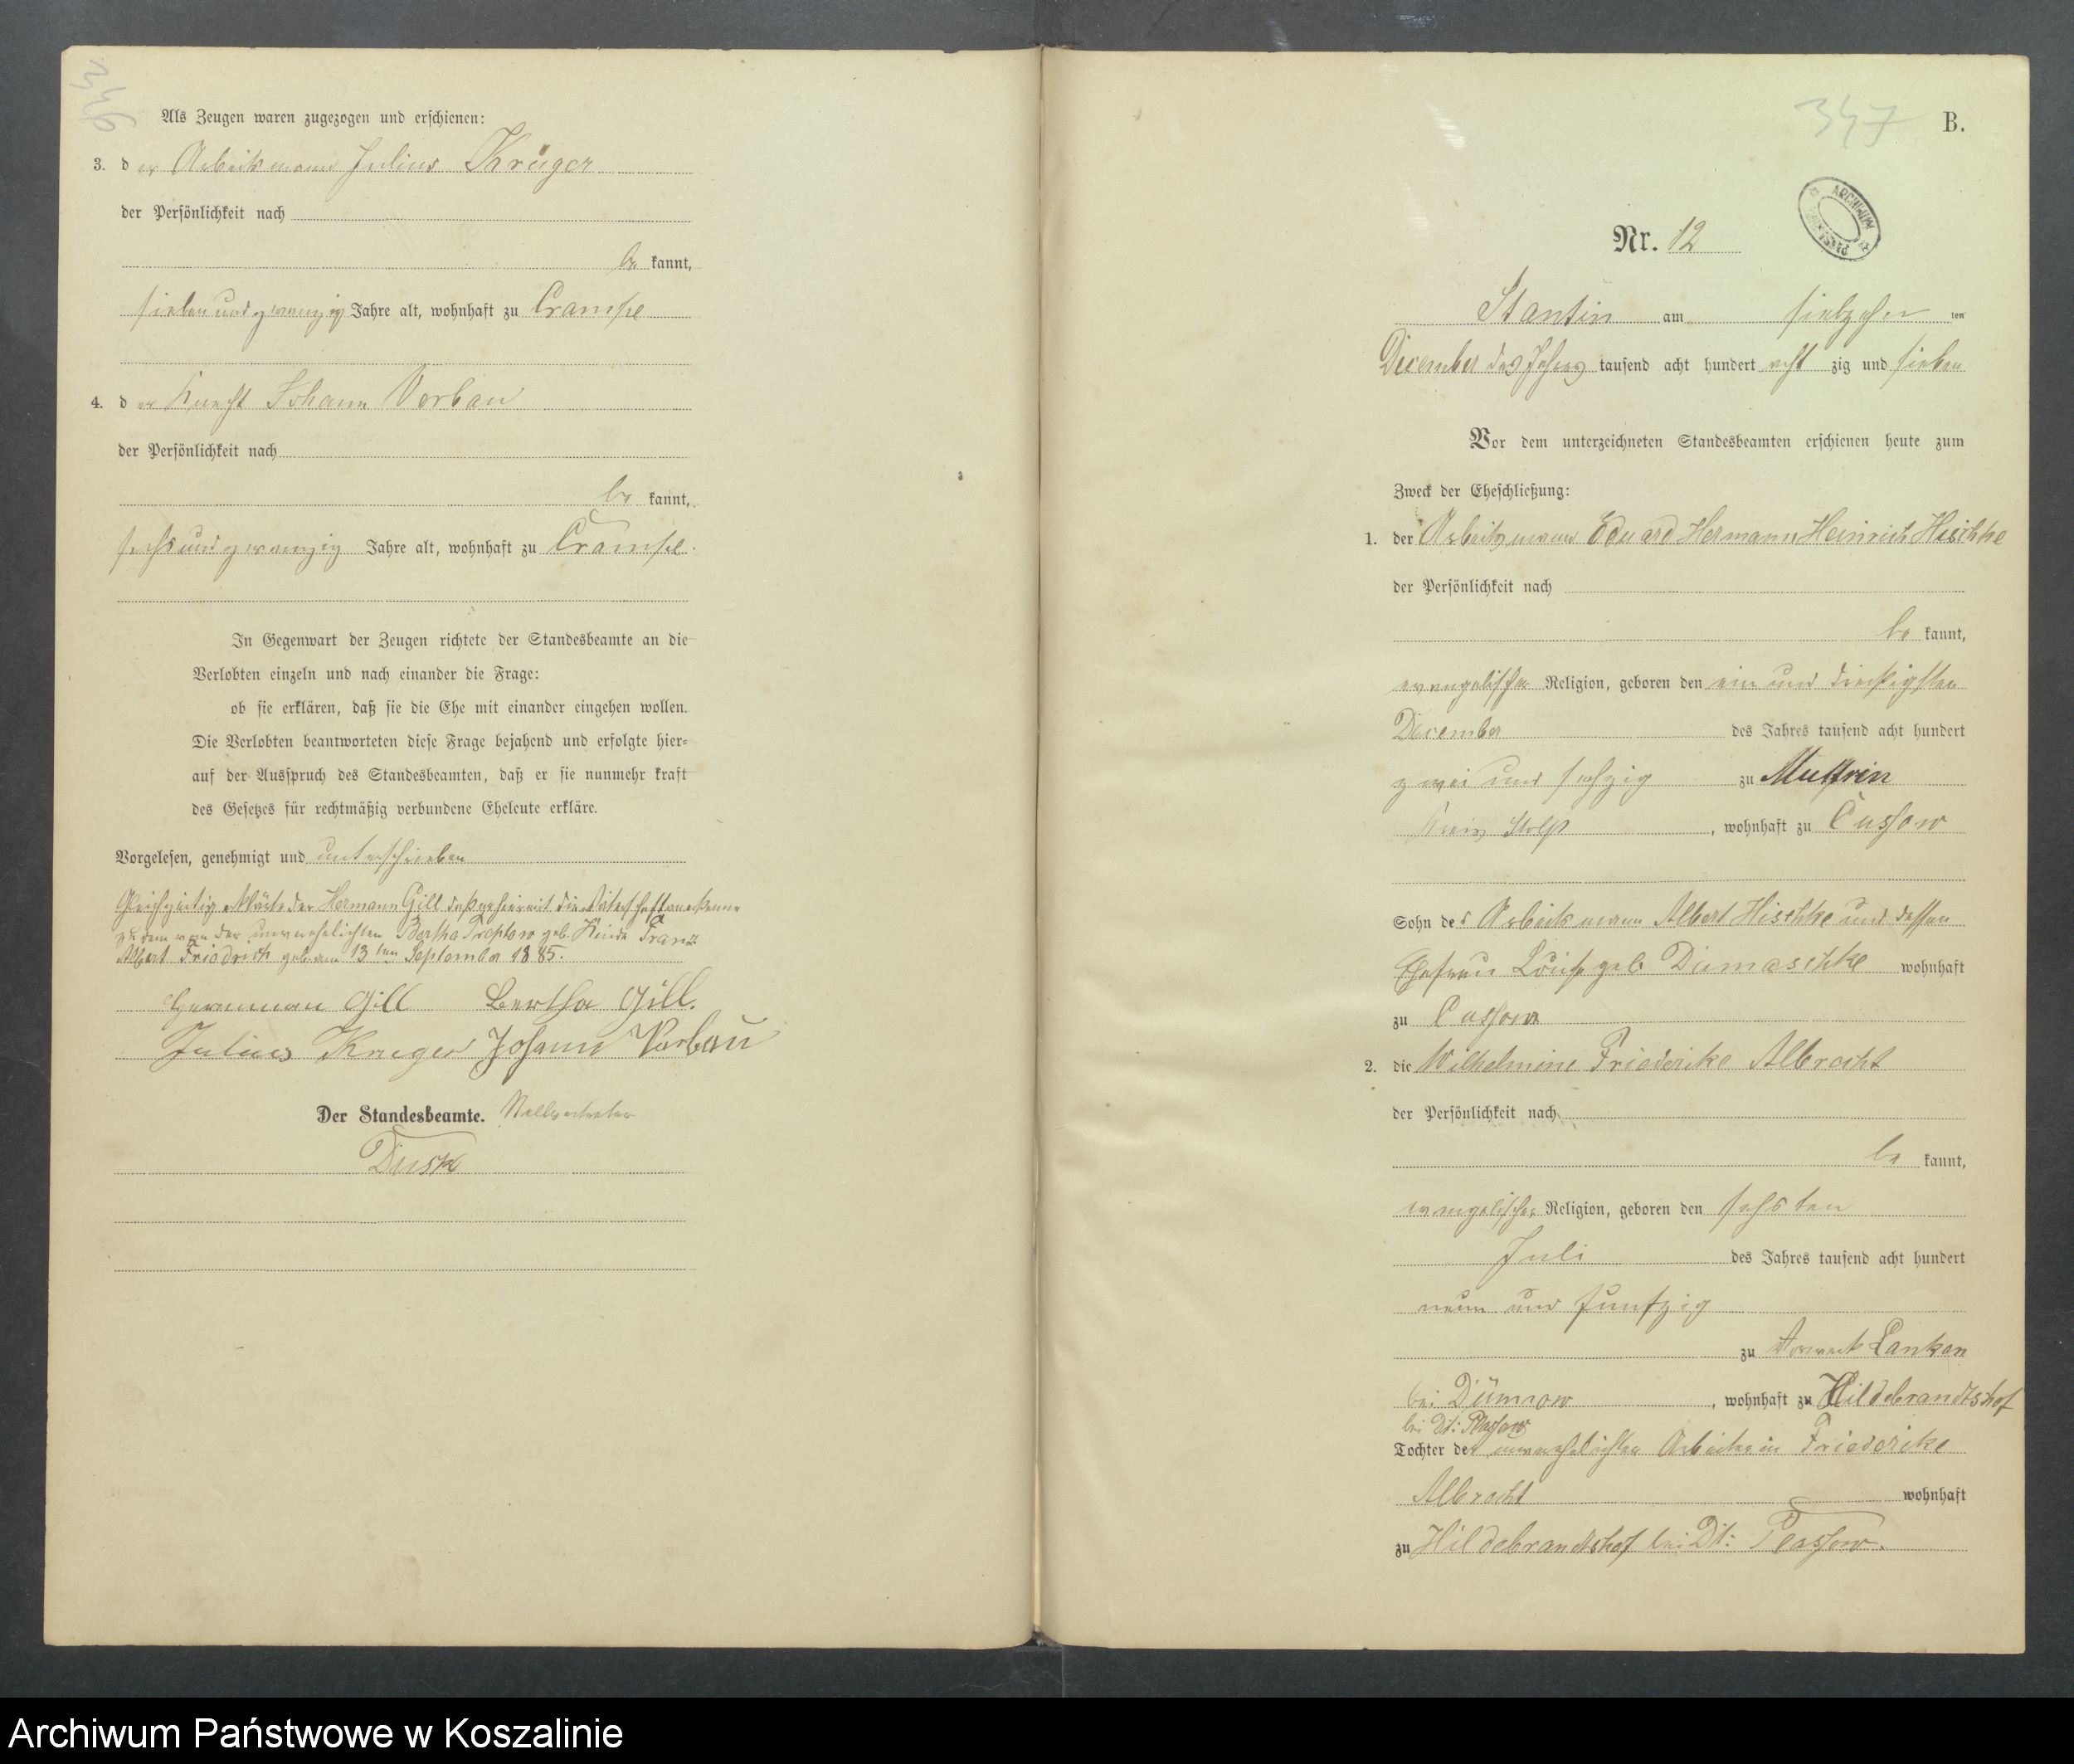 346
Als Zeugen waren zugezogen und erschienen:
3. der Arbeitsmann Julius Krüger
der Persönlichkeit nach
be kannt,
siebenundzwanzig Jahre alt, wohnhaft zu Crampe
4. der Knecht Johann Vorbau
der Persönlichkeit nach
be kannt,
sechsundzwanzig Jahre alt, wohnhaft zu Crampe.
In Gegenwart der Zeugen richtete der Standesbeamte an die
Verlobten einzeln und nach einander die Frage:
ob sie erklären, daß sie die Ehe mit einander eingehen wollen.
Die Verlobten beantworteten diese Frage bejahend und erfolgte hier-
auf der Ausspruch des Standesbeamten, daß er sie nunmehr kraft
des Gesetzes für rechtmäßig verbundene Eheleute erkläre.
Vorgelesen, genehmigt und unterschrieben
Gleichzeitig erklärte der Hermann Gill daß er hiermit die Vaterschaft anerkenne
zu dem von der unverehelichten Bertha Treptow geb. Kinde Franz
Albert Friedrich geb. am 13ten September 1885.
Hermann Gill Bertha Gill.
Julius Krüger Johann Vorbau
Der Standesbeamte. Stellvertreter
347
B.
ARCHIWUM
Nr. 12
Stantin am siebzehn ten
December des Jahres tausend acht hundert acht zig und sieben
Vor dem unterzeichneten Standesbeamten erschienen heute zum
Zweck der Eheschließung:
1. der Arbeitsmann Eduard Hermann Heinrich Hischke
der Persönlichkeit nach
be kannt,
evangelischer Religion, geboren den ein und dreißigsten
December des Jahres tausend acht hundert
zwei und sechzig zu Muttrin
Kreis Stolp, wohnhaft zu Cussow
Sohn des Arbeitsmann Albert Hischke und dessen
Ehefrau Louise geb. Dumaschke wohnhaft
zu Cussow
2. die Wilhelmine Friederike Albrecht
der Persönlichkeit nach
be kannt,
evangelischer Religion, geboren den sechsten
Juli des Jahres tausend acht hundert
neun und funfzig
zu Vorwerk Lankon
bei Dünnow, wohnhaft zu Hildebrandtshof
bei Dt: Plassow
Tochter der unverehelichten Arbeiterin Friederike
Albrecht wohnhaft
zu Hildebrandtshof bei Dt: Plassow.
Archiwum Państwowe w Koszalinie